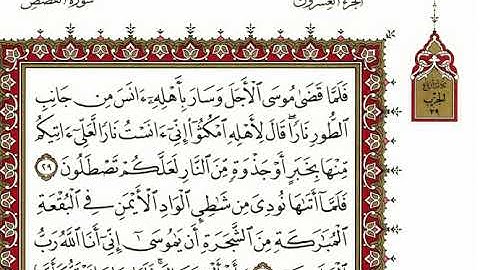 الجزء العشرون
سورة القصص
الحزب
٣٩
فَلَمَّا قَضَىٰ مُوسَى ٱلْأَجَلَ وَسَارَ بِأَهْلِهِۦٓ ءَانَسَ مِن جَانِبِ
ٱلطُّورِ نَارًا قَالَ لِأَهْلِهِ ٱمْكُثُوٓا۟ إِنِّىٓ ءَانَسْتُ نَارًا لَّعَلِّىٓ ءَاتِيكُم
مِّنْهَا بِخَبَرٍ أَوْ جَذْوَةٍ مِّنَ ٱلنَّارِ لَعَلَّكُمْ تَصْطَلُونَ ٢٩
فَلَمَّآ أَتَىٰهَا نُودِىَ مِن شَٰطِئِ ٱلْوَادِ ٱلْأَيْمَنِ فِى ٱلْبُقْعَةِ
ٱلْمُبَٰرَكَةِ مِنَ ٱلشَّجَرَةِ أَن يَٰمُوسَىٰٓ إِنِّىٓ أَنَا ٱللَّهُ رَبُّ